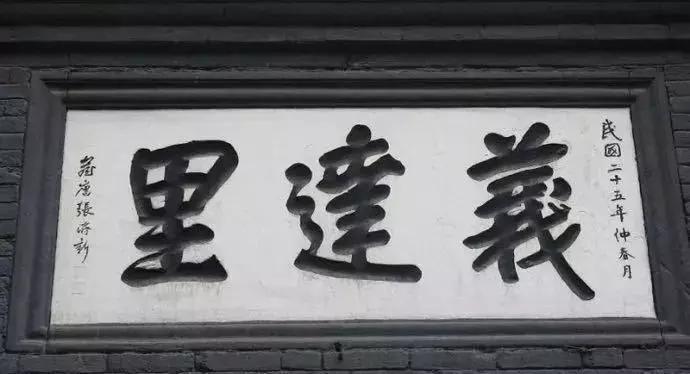 民國二十五年仲春月
義達里
廬張濟新